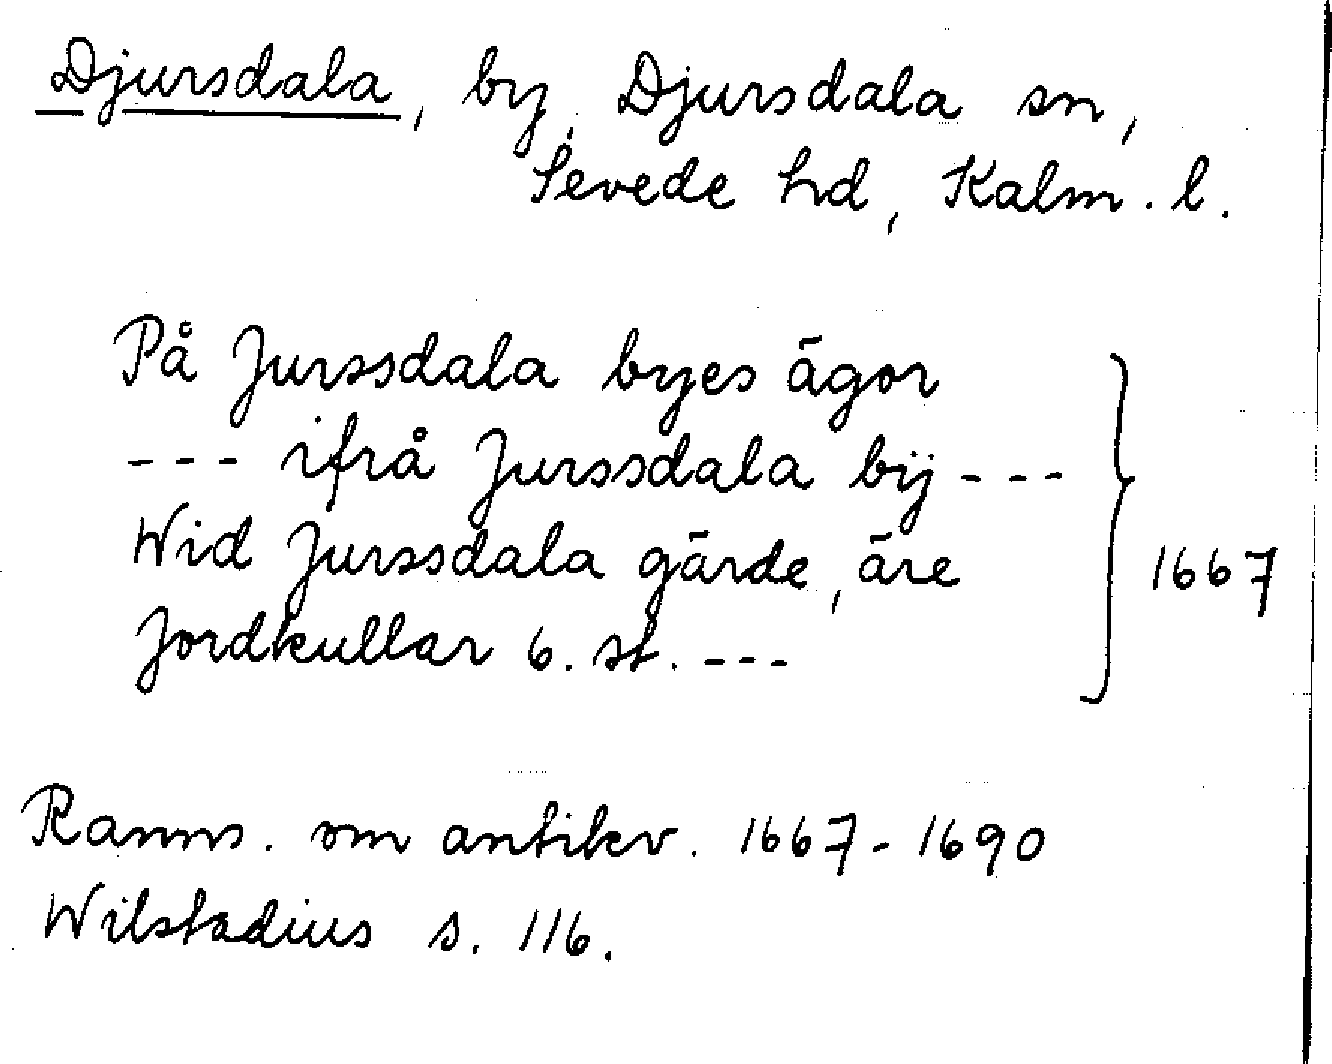 Djursdala, by, Djursdala sn,
Sevede hd, Kalm. l.
På Jurssdala byes ägor
--- ifrå Jurssdala bÿ ---
Wid Jurssdala gärde, äre
Jordkullar 6. st. ---
1667
Ranns. om antikv. 1667-1690
Wilstadius s. 116.